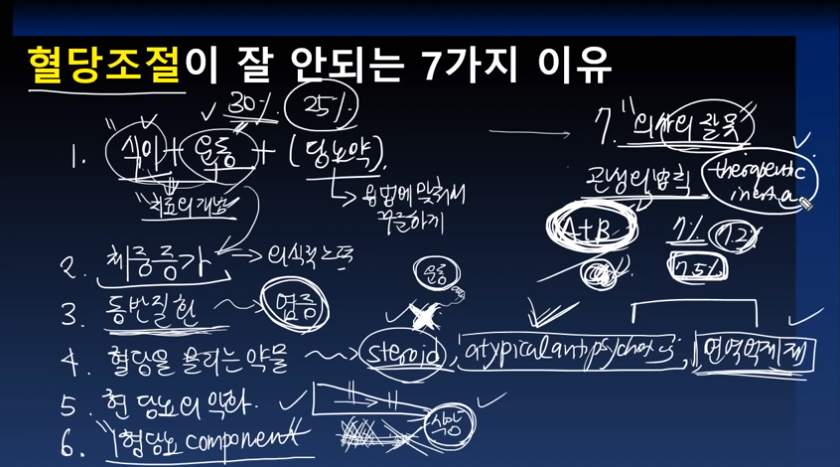 혈당조절이 잘 안되는 7가지 이유
30% 25%
1. "식이 + 운동 + (당뇨약)
"치료의 개념"
→ 용법에 맞춰서
꾸준하게
2. 체중증가 → 의식적 노력
3. 동반질환 염증
운동
4. 혈당을 올리는 약물 steroid, atypical antipsychotics, 면역억제제
5. 현 당뇨의 악화.
6. "1형당뇨 component"
식사
7. "의사의 잘못"
관성의 법칙 therapeutic
inertia
A+B 7% 7.2%
7.5%